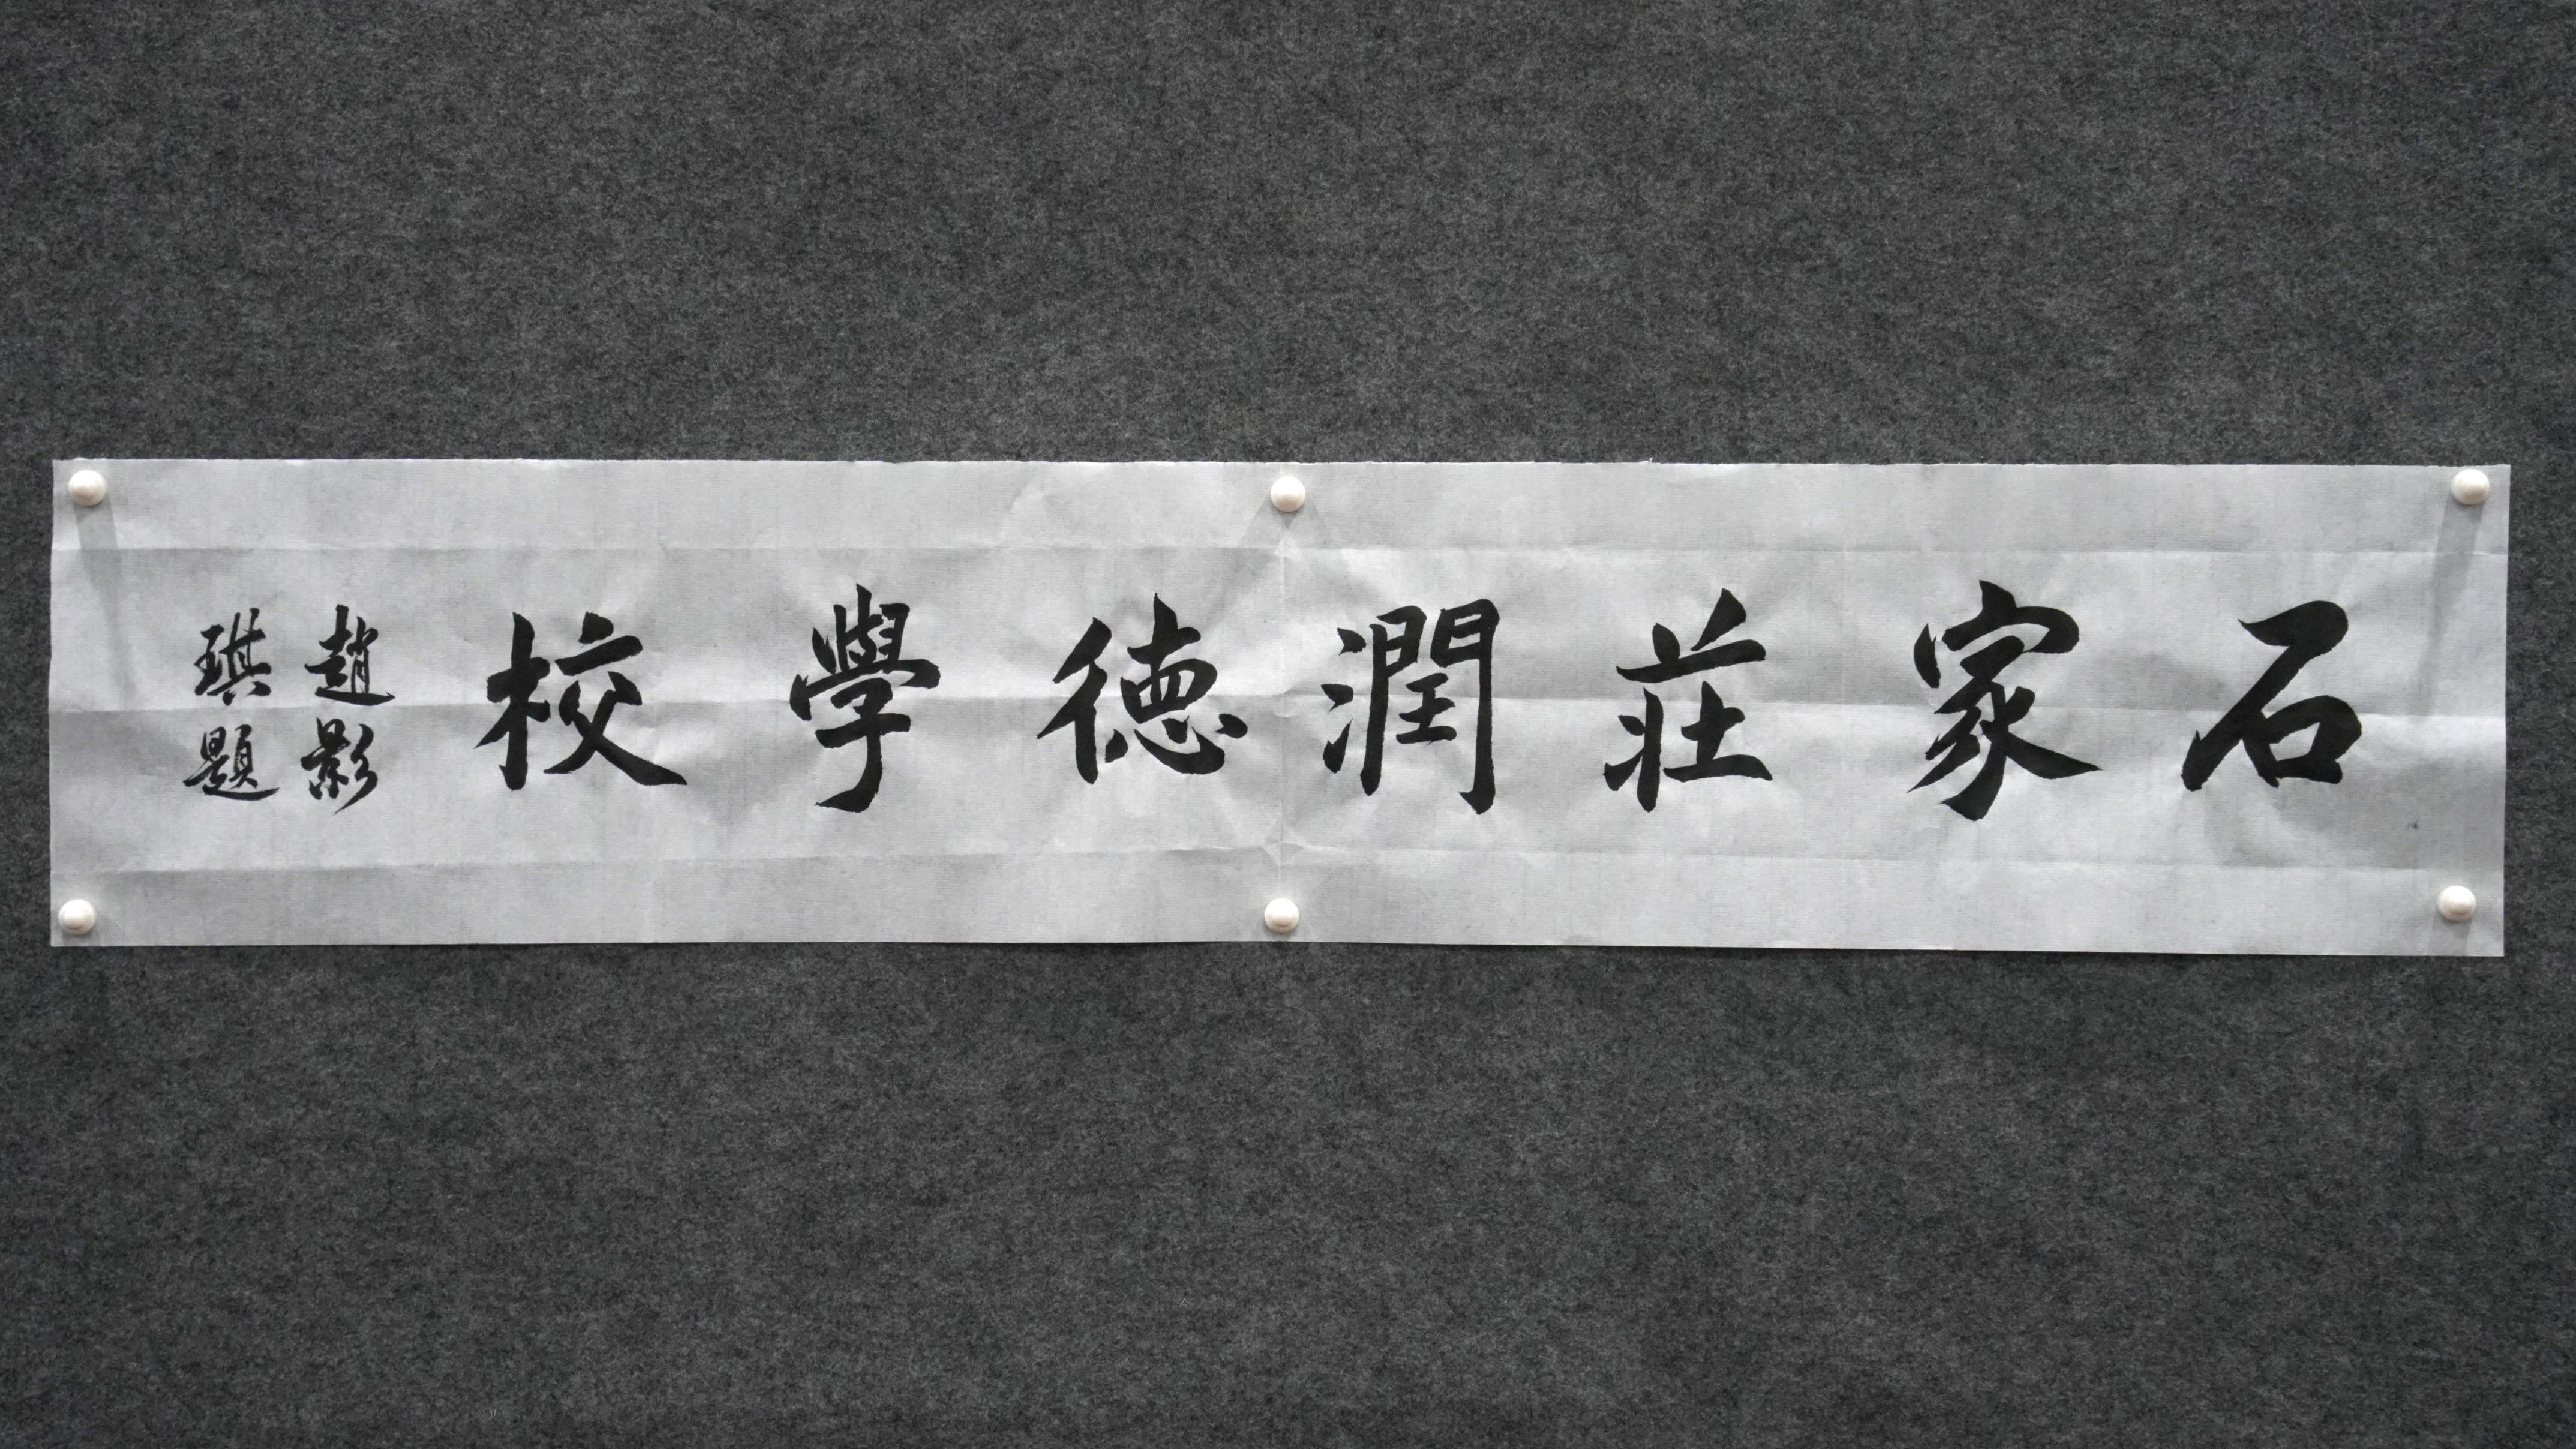 石家莊潤德學校
趙影
琪題